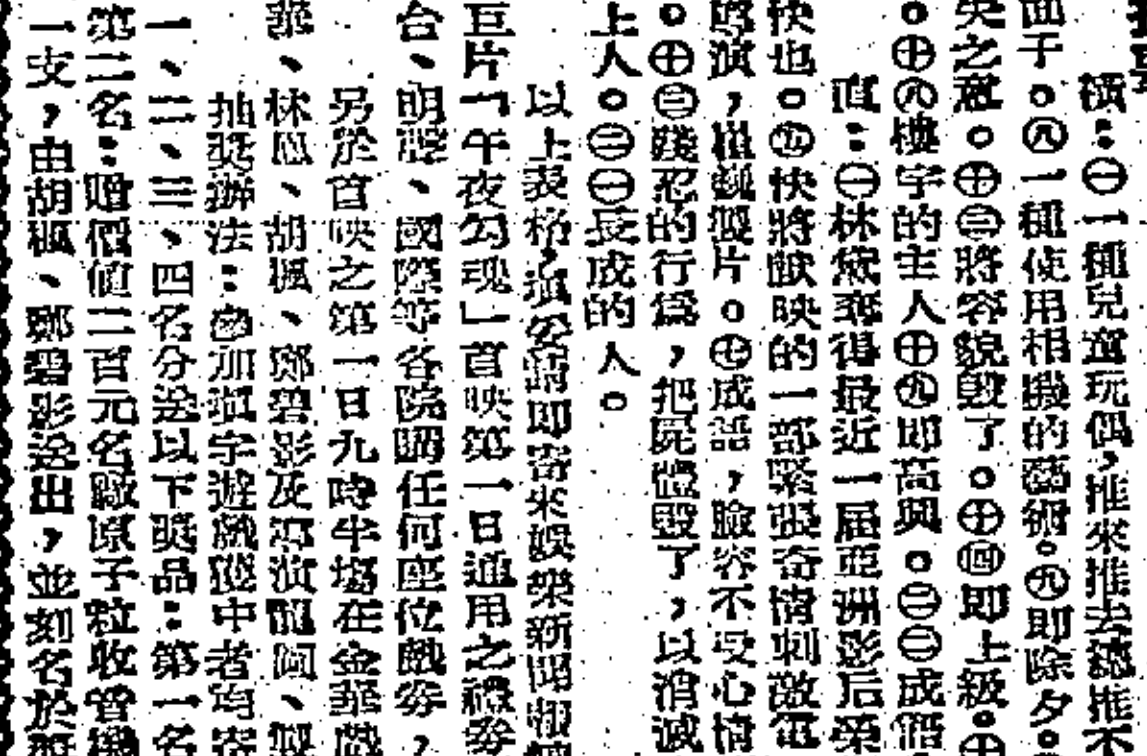 橫：㊀一種兒童玩偶，推來推去總推不
面子。㊇一種使用相機的藝術。㊈即除夕。
失之意。㊉㊂將容貌毀了。㊉㊃即上級。㊉
。㊉㊇樓宇的主人㊉㊈即高興。㊁㊁成語
直：㊀林黛奪得最近一屆亞洲影后榮
快也。㊄快將獻映的一部緊張奇情刺激電
演，製片。㊆成語，臉容不受心情
。㊉㊂殘忍的行為，把屍體毀了，以消滅
上人。㊁㊀長成的人。
以上表格，填妥請即寄來娛樂新聞報
巨片「午夜勾魂」首映第一日通用之禮券
合、明聲、國際等各院購任何座位戲券，
另於首映之第一日九時半場在金華戲
、林鳳、胡楓、鄧碧影及導演龍圖、製
抽獎辦法：參加填字遊戲獲中者均寄
一、二、三、四名分送以下獎品：第一名
第二名：贈價值二百元名廠原子粒收音機
一支，由胡楓、鄧碧影送出，並刻名於